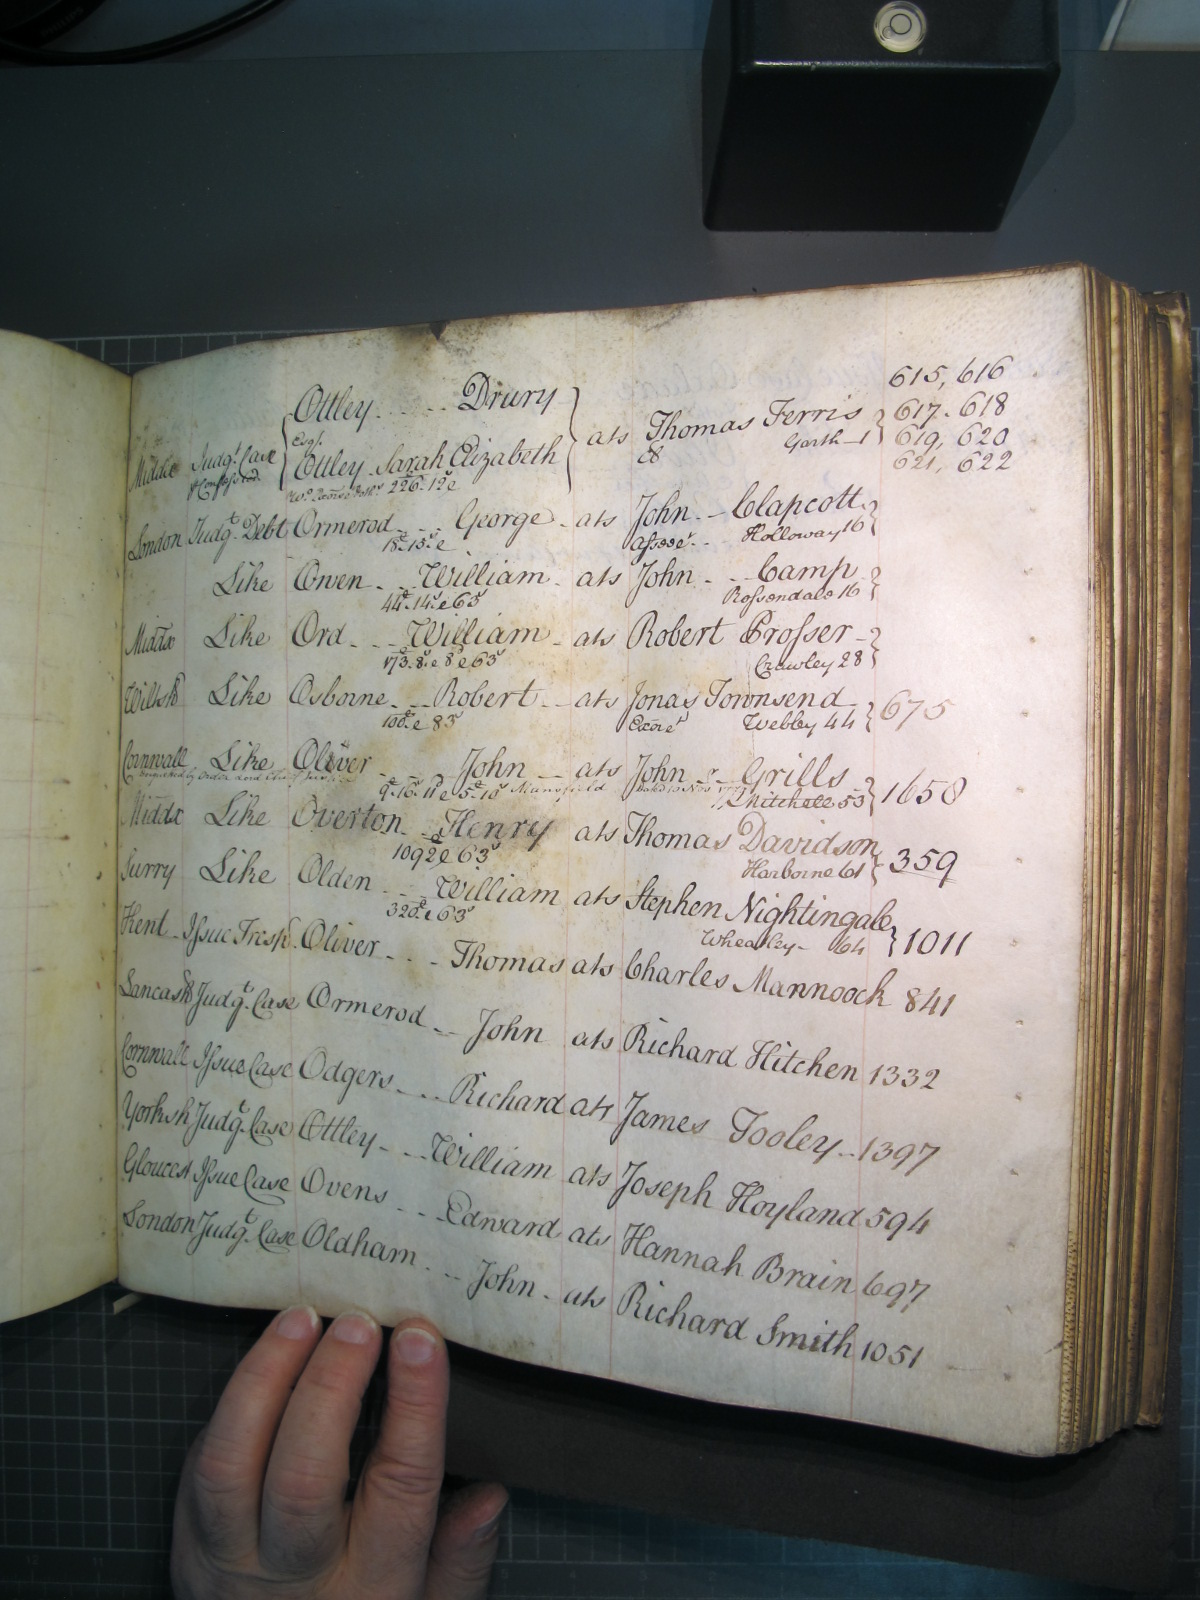 615, 616
Ottley Drury
Middx Judgt. Case Esqr. ats Thomas Ferris 617. 618
& Confessed. Ottley Sarah Elizabeth & Garth 1 619, 620
226 . 12 621, 622
London Judgt. Debt Ormerod George ats John Clapcott
Assee Holloway 16
Like Owen William ats John Camp
44 . 14 & 63s Rossendale 16
Middx Like Ord William ats Robert Prosser
173 . 8 . 8 & 63s Crawley 28
Wiltsh Like Osborne Robert ats Jonas Townsend 675
100 & 83s Webley 44
Cornwall Like Oliver John ats John Grills
by Order Lord Chief Justice 9 . 16 . 11 & 5 . 10 Mansfield Mitchell 53 1650
Middx Like Overton Henry ats Thomas Davidson 359
1092 & 63s Harborne 61
Surry Like Olden William ats Stephen Nightingale
320 & 63s Wheatley 64 1011
Kent Issue Tresp. Oliver Thomas ats Charles Mannoock 841
Lancash Judgt. Case Ormerod John ats Richard Hitchen 1332
Cornwall Issue Case Odgers Richard ats James Tooley 1397
Yorksh Judgt. Case Ottley William ats Joseph Hoyland 594
Gloucest Issue Case Ovens Edward ats Hannah Brain 697
London Judgt. Case Oldham John ats Richard Smith 1051